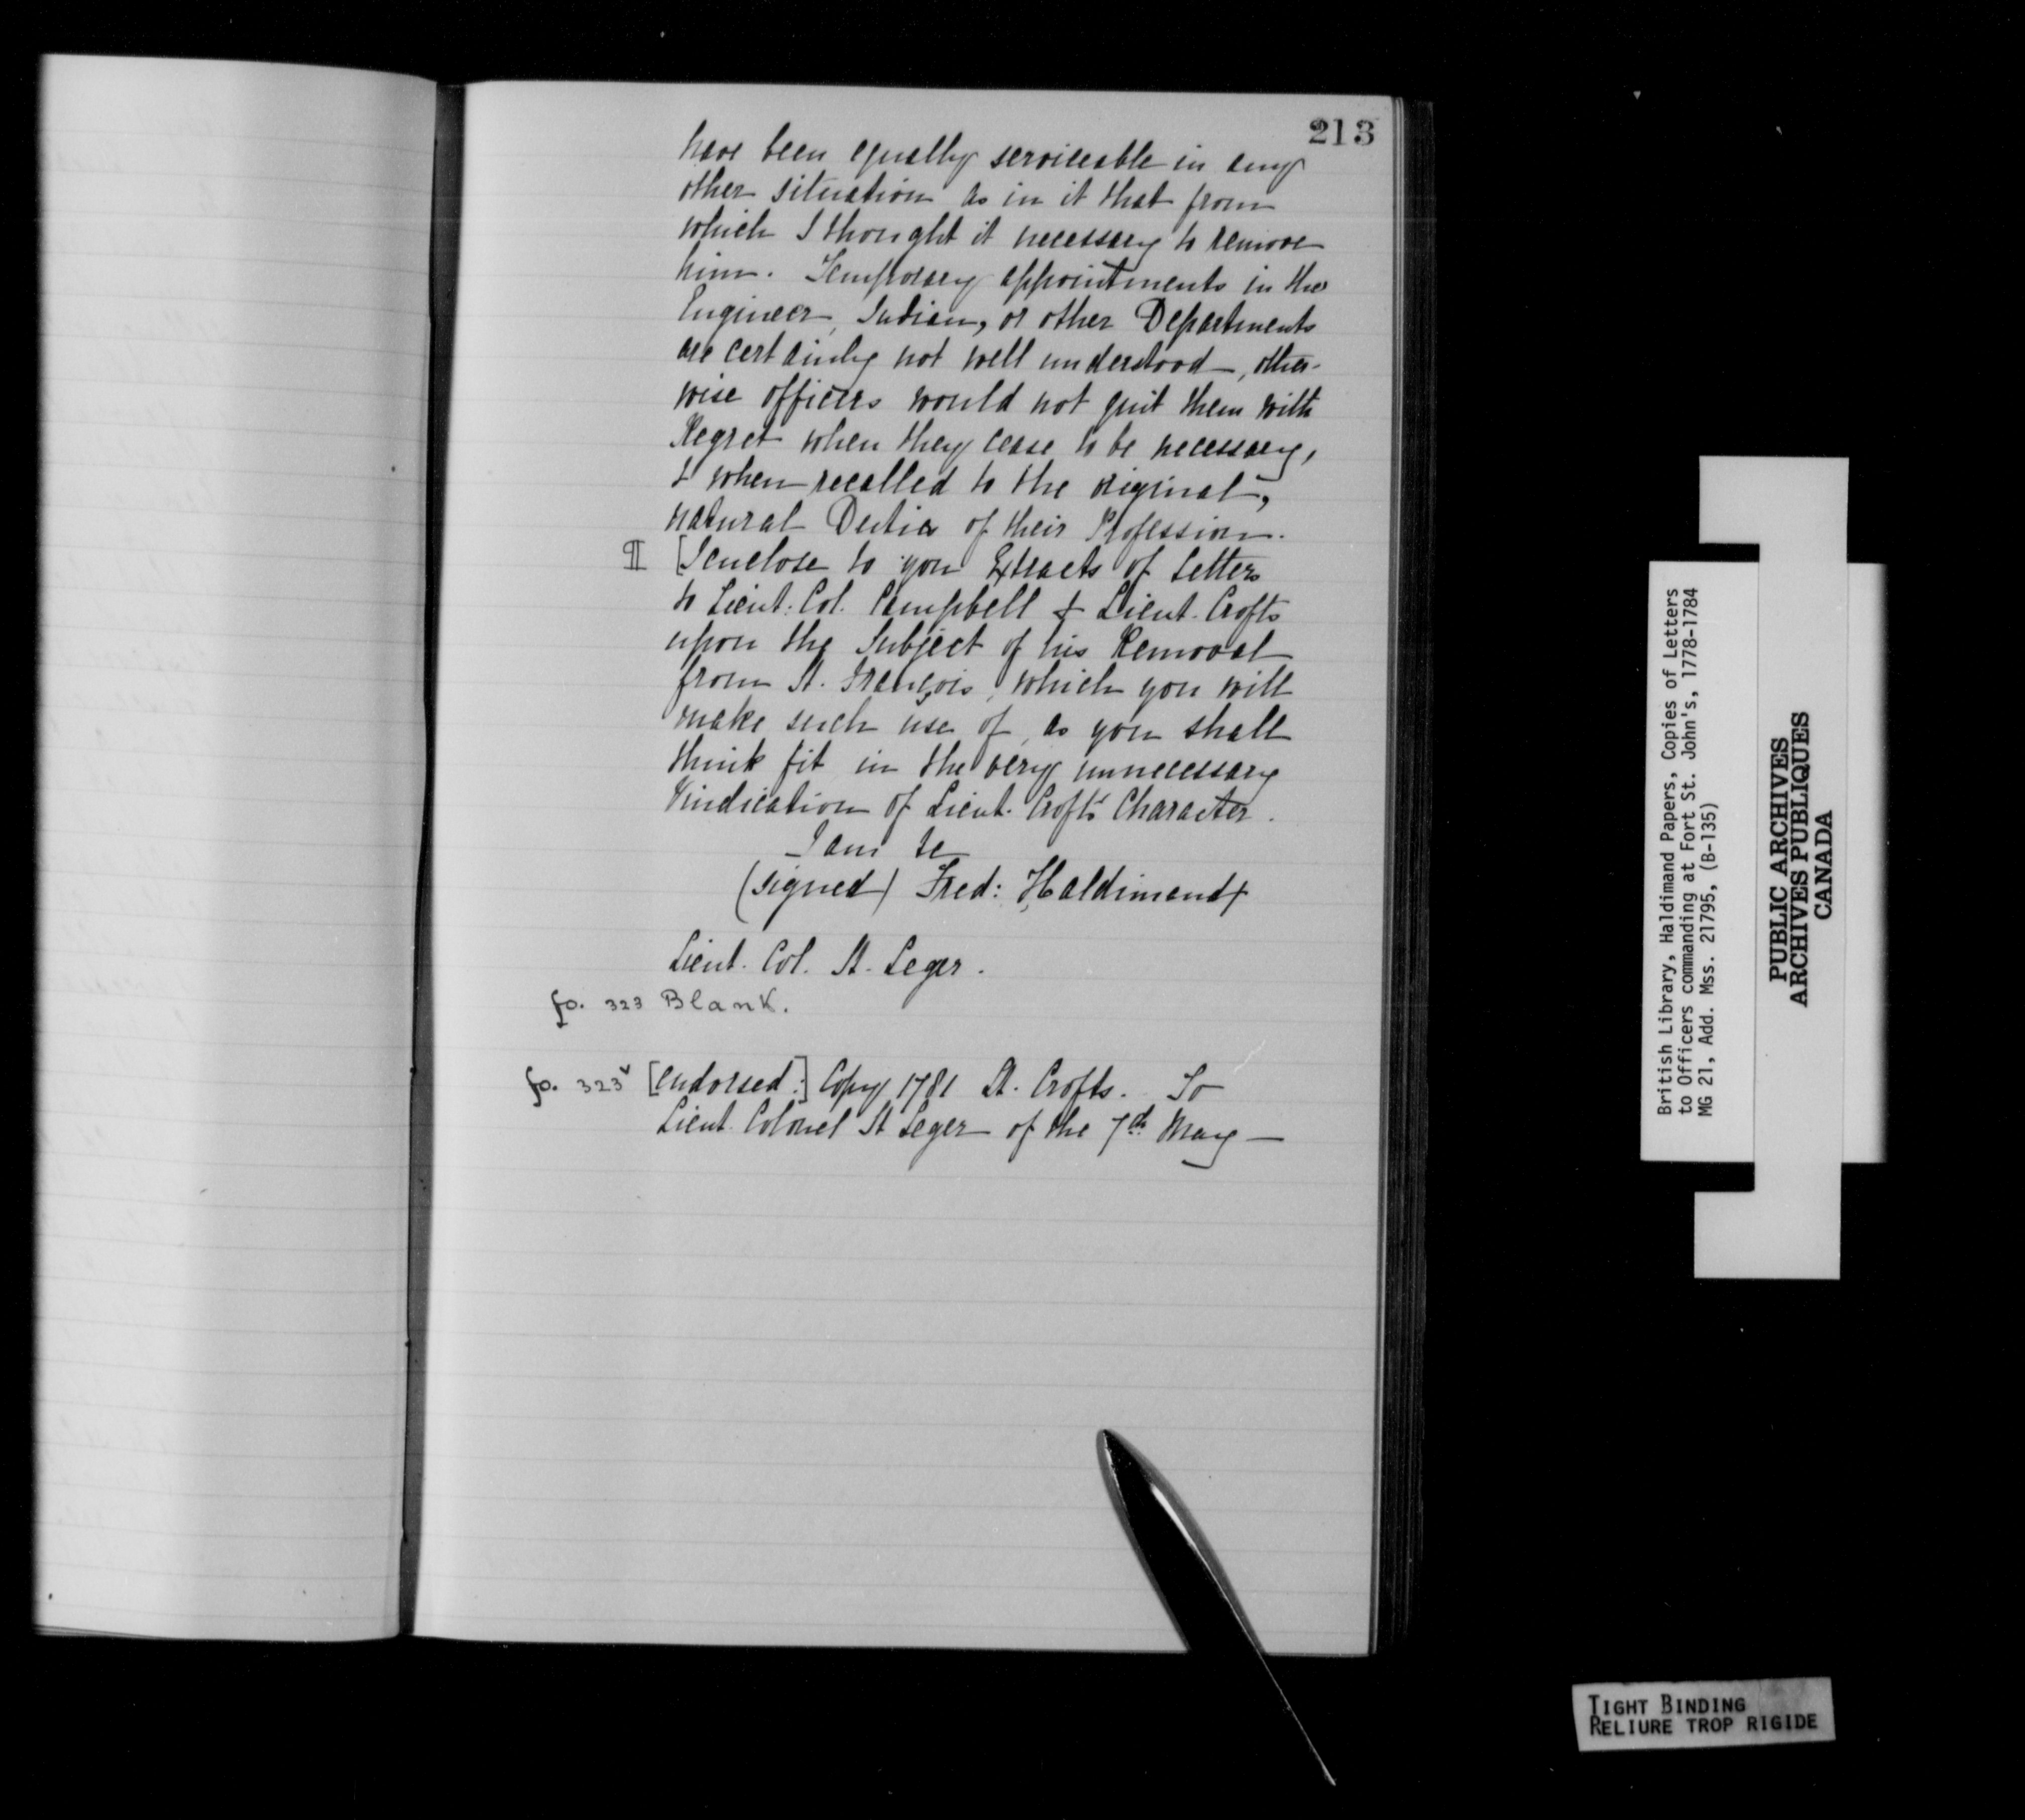 213
have been equally serviceable in any
other situation as in it that from
which I thought it necessary to remove
him. Temporary appointments in the
Engineer, Indian, or other Departments
are certainly not well understood, other-
wise officers would not quit them with
Regret when they cease to be necessary,
& when recalled to the original,
natural Duties of their Profession.
¶ [I enclose to you Extracts of Letters
to Lieut. Col. Campbell & Lieut. Crofts
upon the Subject of his Removal
from St. François, which you will
make such use of, as you shall
think fit in the very unnecessary
Vindication of Lieut. Crofts' Character.
I am &c
(signed) Fred: Haldimand
Lieut. Col. St. Leger.
fo. 323 Blank.
fo. 323v [endorsed:] Copy 1781 Lt. Crofts. To
Lieut. Colonel St Leger of the 7th May —
British Library, Haldimand Papers, Copies of Letters
to Officers commanding at Fort St. John's, 1778-1784
MG 21, Add. Mss. 21795, (B-135)
PUBLIC ARCHIVES
ARCHIVES PUBLIQUES
CANADA
TIGHT BINDING
RELIURE TROP RIGIDE